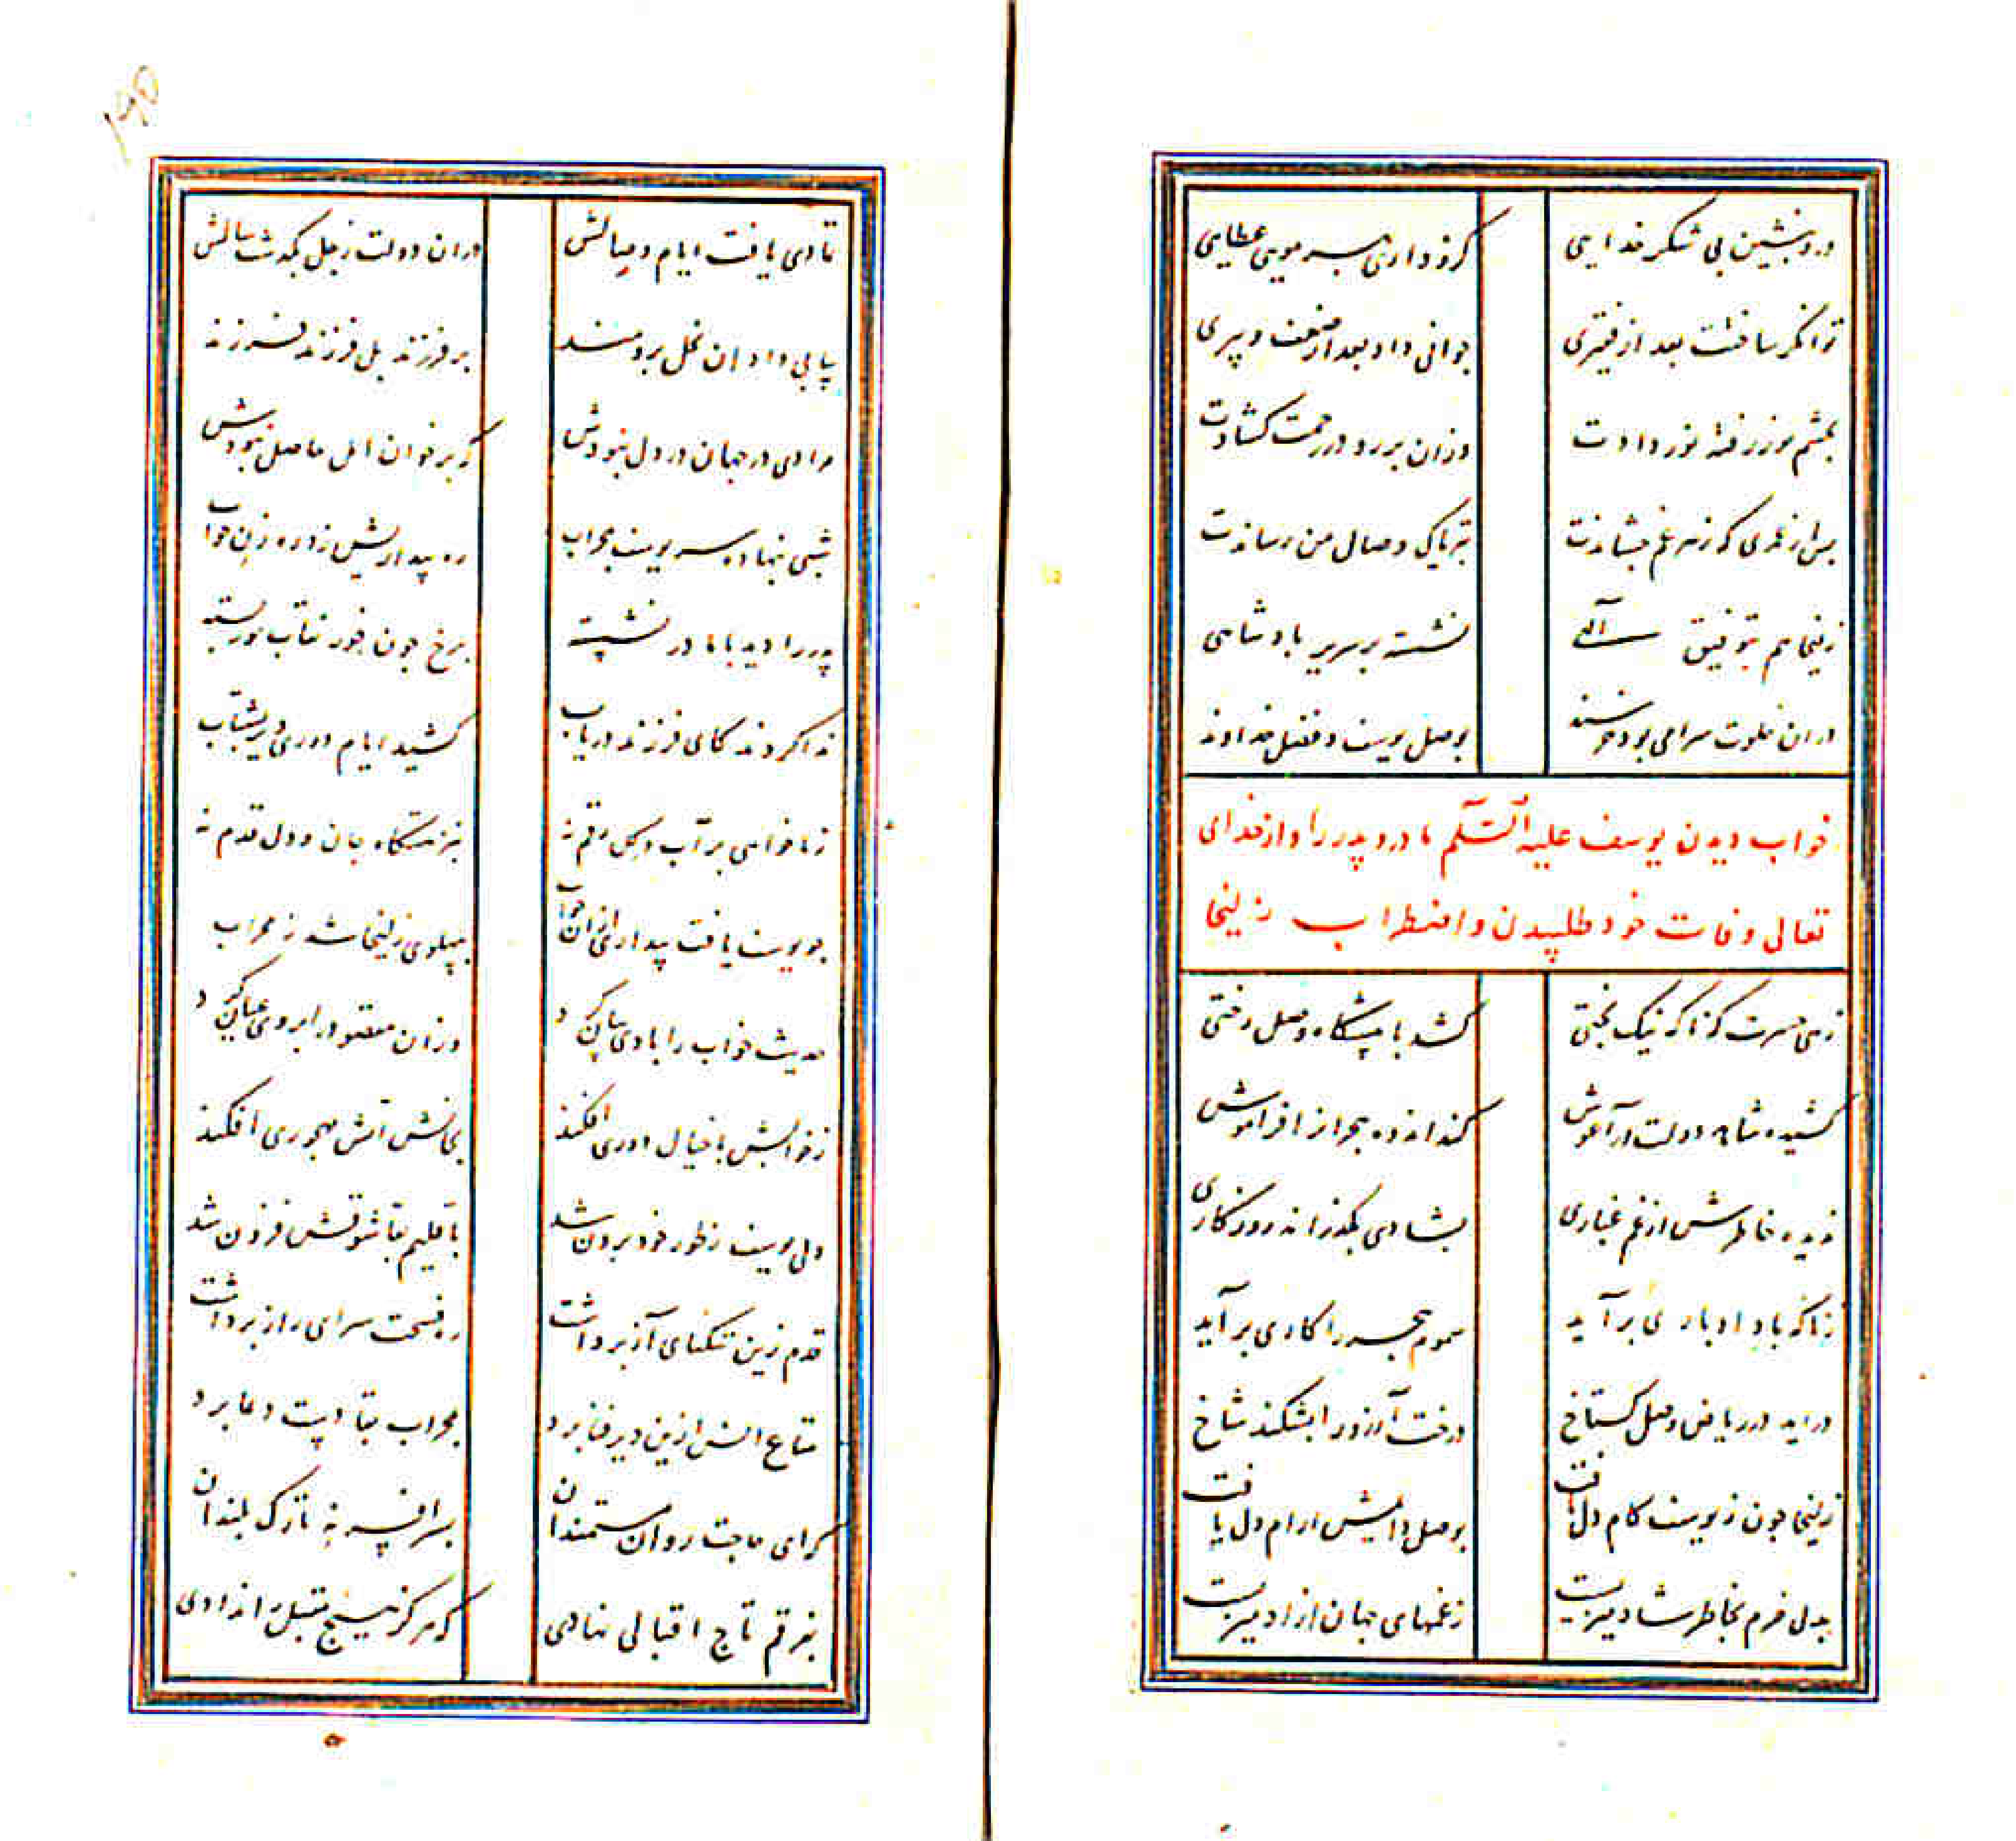 درو بنشین پی شکر خدایی کزو داری بهر مویی عطایی
توانگر ساختت بعد از فقیری جوانی داد بعد از ضعف و پیری
بچشم نور رفته نور دادت وزان بر رو در رحمت کشادت
پس از عمری که زهر غم چشاندت بتریاک وصال من رساندت
زلیخا هم بتوفیق آلهی نشسته بر سریر بادشاهی
دران خلوت سرا می بود خرسند بوصل یوسف و فضل خداوند
خواب دیدن یوسف علیه السلام مادر و پدر را و از خدای
تعالی وفات خود طلبیدن و اضطراب زلیخا
زهی حسرت که ناگه نیک بختی کشد با پیشگاه وصل رختی
کشیده شاهد دولت در آغوش کند اندوه هجر از افراموش
ندیده خاطرش از غم غباری بشادی بگذراند روزگاری
زناگه باد ادباری بر آید سموم هجر را کاری بر آید
در آید در ریاض وصل گستاخ درخت آرزو را بشکند شاخ
زلیخا چون ز یوسف کام دل یافت بوصل دایمش آرام دل یافت
بدل خرم بخاطر شاد میزیست زغمهای جهان آزاد میزیست
تمادی یافت ایام وصالش دران دولت ز چل بگذشت سالش
پیاپی داد آن نخل برومند بر فرزند بل فرزند فرزند
مرادی در جهان در دل نبودش که بر خوان امل حاصل نبودش
شبی بنهاده سر یوسف بمحراب ره بیداریش زد رهزن خواب
پدر را دید با مادر نشسته برخ چون خور نقاب نور بسته
ندا کردند کای فرزند دریاب کشید ایام دوری دیر بشتاب
زما خواهی بر آب و گل رقم نه بنزهتگاه جان و دل قدم نه
چو یوسف یافت بیداری ازان خواب بپهلوی زلیخا شد ز محراب
حدیث خواب را با وی بیان کرد وزان مقصود را بر وی عیان کرد
زخوابش با خیال دوری افکند بجانش آتش مهجوری افکند
ولی یوسف ز طور خود برون شد باقلیم بقا شوقش فزون شد
قدم زین تنگنای آز برداشت ره فسحت سرای راز برداشت
متاع انس ازین دیر فنا برد بمحراب بقا دست دعا برد
که ای حاجت روان مستمندان بسر افسر نه تارک بلندان
بفرقم تاج اقبالی نهادی که هرگز هیچ مقبل را ندادی